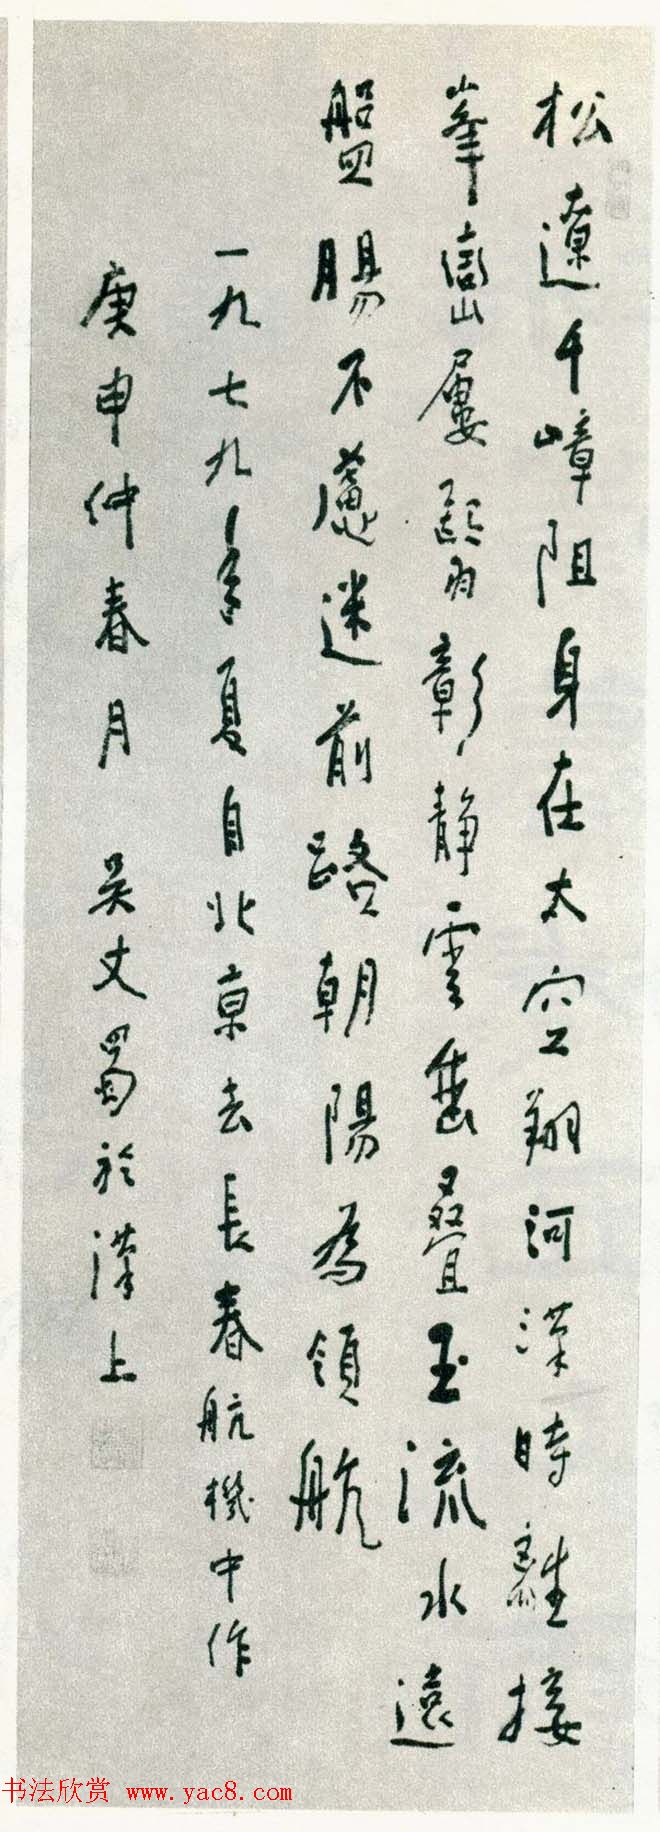 松遼千嶂阻身在太空翔河漢時離接
峯巒屢翳彰静雲堆疊玉流水遠
盤腸不慮迷前路朝陽為領航
一九七九年夏自北京去長春航機中作
庚申仲春月 吴丈蜀於漢上
书法欣赏 www.yac8.com